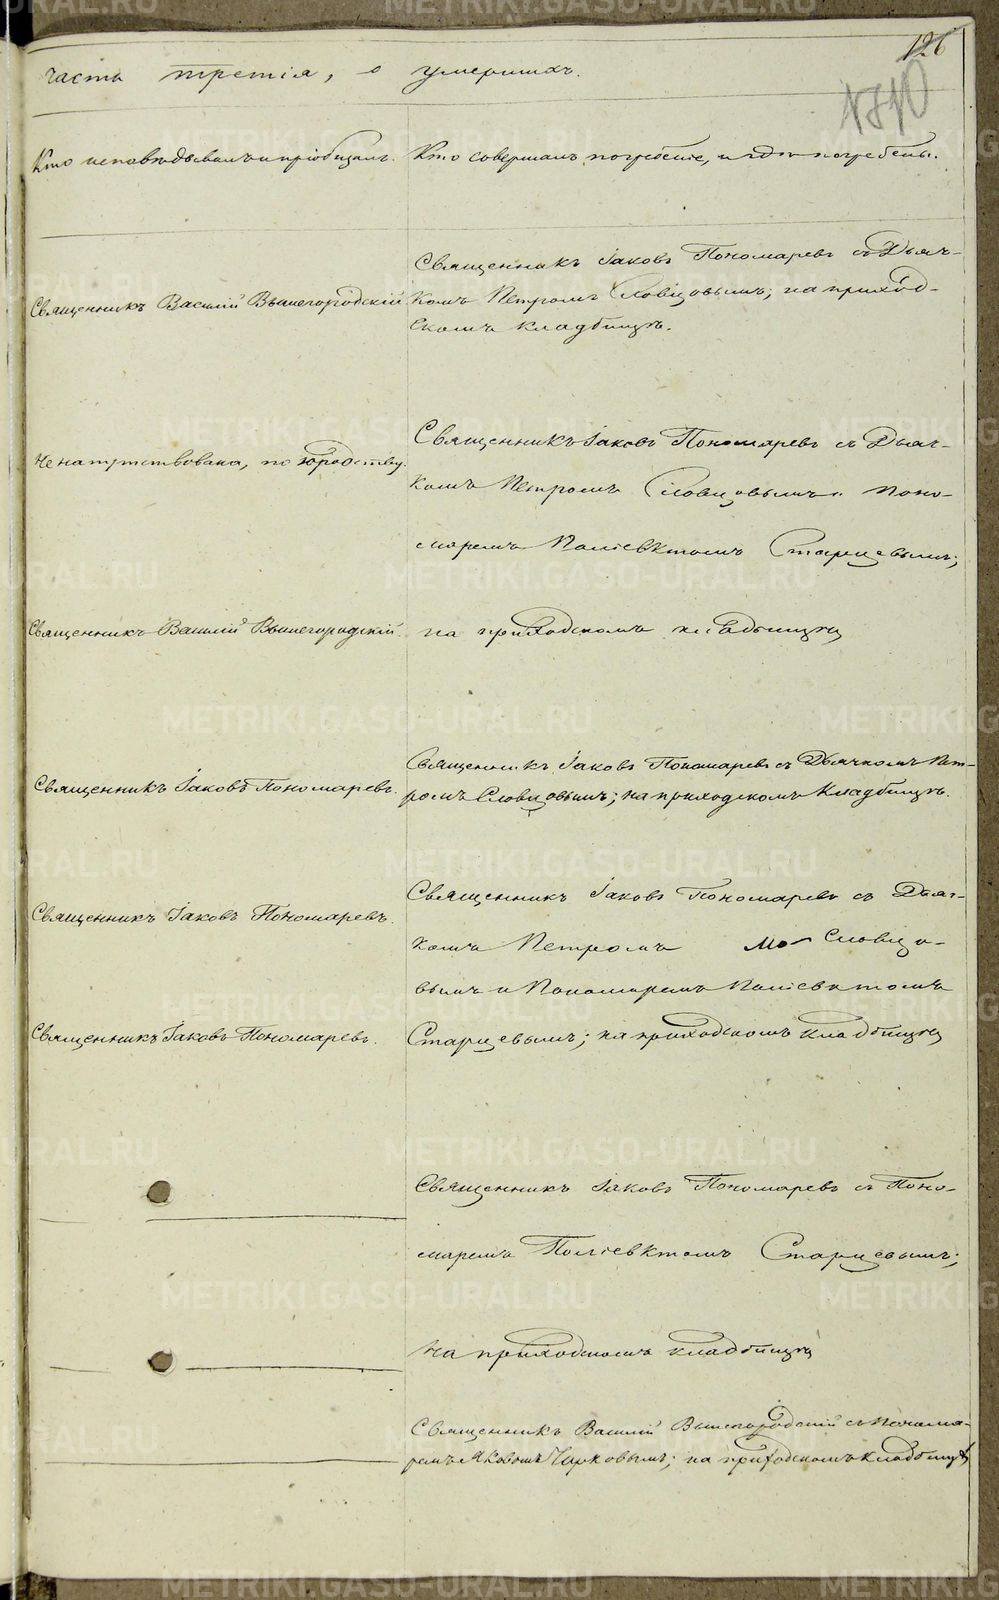 126
часть третія, о умершихъ.
Кто исповѣдывалъ и пріобщалъ.
Кто совершалъ погребеніе, и гдѣ погребены.
Священникъ Василій Вышегородскій
Священникъ Іаковъ Пономаревъ съ Дьяч-
комъ Петромъ Словцовымъ; на приход-
скомъ кладбищѣ.
не напутствована, по
Священникъ Іаковъ Пономаревъ съ Дьяч-
комъ Петромъ Словцовымъ и Поно-
маремъ Поліевктомъ Старцевымъ;
Священникъ Василій Вышегородскій.
на приходскомъ кладбищѣ
Священникъ Іаковъ Пономаревъ.
Священникъ Іаковъ Пономаревъ съ Дьячкомъ Пет-
ромъ Словцовымъ; на приходскомъ Кладбищѣ.
Священникъ Іаковъ Пономаревъ.
Священникъ Іаковъ Пономаревъ съ Дьяч-
комъ Петромъ Словцо-
вымъ и Пономаремъ Поліевктомъ
Священникъ Іаковъ Пономаревъ.
Старцевымъ; на приходскомъ кладбищѣ
Священникъ Іаковъ Пономаревъ съ Поно-
маремъ Поліевктомъ Старцевымъ;
на приходскомъ кладбищѣ
Священникъ Василій Вышегородскій съ Понома-
ремъ Яковомъ Чирковымъ; на приходскомъ кладбищѣ
METRIKI.GASO-URAL.RU